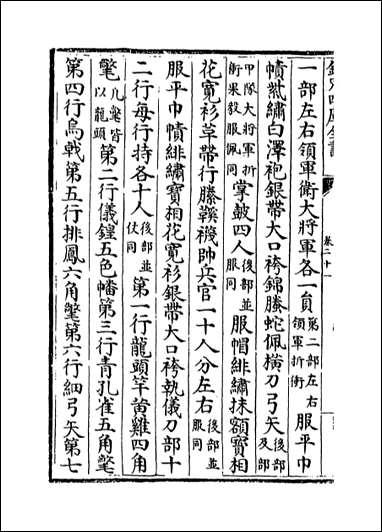 欽定四庫全書
卷二十一
一部左右領軍衛大將軍各一員第二部左右領軍折衝服平巾
幘紫繡白澤袍銀帶大口袴錦螣蛇佩橫刀弓矢後部及部
甲隊大將軍折衝果毅服佩同掌鼓四人後部並服同服帽緋繡抹額寶相
花寬衫革帶行縢鞋襪帥兵官一十人分左右後部並服同
服平巾幘緋繡寶相花寬衫銀帶大口袴執儀刀部十
二行每行持各十人後部並仗同第一行龍頭竿黃雞四角
氅凡氅皆以龍頭第二行儀鍠五色幡第三行青孔雀五角氅
第四行烏戟第五行排鳳六角氅第六行細弓矢第七